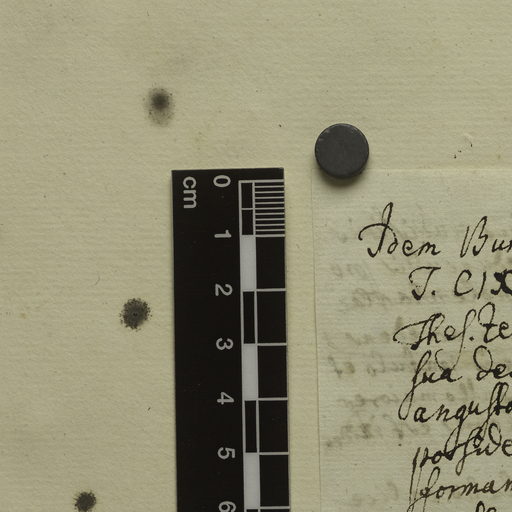 cm
0
1
2
3
4
5
6
Idem Bur
T. CIX
Thes. Te
sua de
angusta
posside
forman